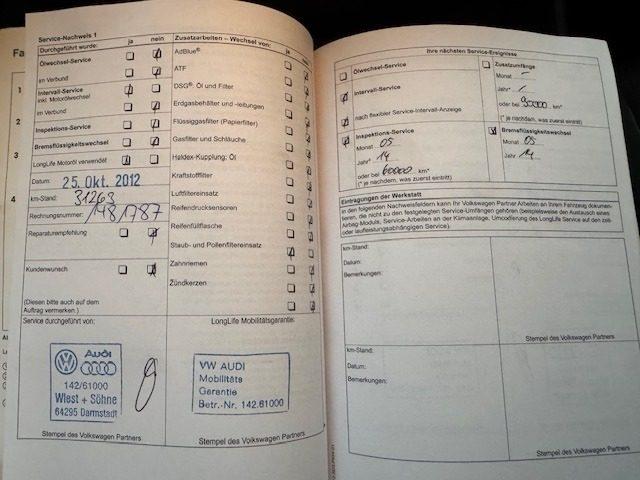 Service-Nachweis 1
Durchgeführt wurde: ja nein
Ölwechsel-Service
im Verbund
Intervall-Service
inkl. Motorölwechsel
im Verbund
Inspektions-Service
Bremsflüssigkeitswechsel
LongLife Motoröl verwendet
Datum: 25. Okt. 2012
km-Stand: 31263
Rechnungsnummer:
Reparaturempfehlung
Kundenwunsch
(Diesen bitte auch auf dem
Auftrag vermerken.)
Service durchgeführt von:
Audi
142/61000
Wiest + Söhne
64295 Darmstadt
Stempel des Volkswagen Partners
Zusatzarbeiten – Wechsel von: ja
AdBlue®
ATF
DSG®: Öl und Filter
Erdgasbehälter und -leitungen
Flüssiggasfilter (Papierfilter)
Gasfilter und Schläuche
Haldex-Kupplung: Öl
Kraftstofffilter
Luftfiltereinsatz
Reifendrucksensoren
Reifenfüllflasche
Staub- und Pollenfiltereinsatz
Zahnriemen
Zündkerzen
LongLife Mobilitätsgarantie:
VW AUDI
Mobilitäts
Garantie
Betr.-Nr. 142.61000
Stempel des Volkswagen Partners
1
2
3
4
Ihre nächsten Service-Ereignisse
Ölwechsel-Service
Intervall-Service
nach flexibler Service-Intervall-Anzeige
Inspektions-Service
Monat 05
Jahr* 14
oder bei 60000 km*
(* je nachdem, was zuerst eintritt)
Zusatzumfänge
Monat –
Jahr*
oder bei 90000 km*
(* je nachdem, was zuerst eintritt)
Bremsflüssigkeitswechsel
Monat 05
Jahr 14
Eintragungen der Werkstatt
In den folgenden Nachweisfeldern kann Ihr Volkswagen Partner Arbeiten an Ihrem Fahrzeug dokumen-
tieren, die nicht zu den festgelegten Service-Umfängen gehören (beispielsweise den Austausch eines
Airbag-Moduls, Service-Arbeiten an der Klimaanlage, Umcodierung des LongLife Service auf den zeit-
oder laufleistungsabhängigen Service).
km-Stand:
Datum:
Bemerkungen:
Stempel des Volkswagen Partners
km-Stand:
Datum:
Bemerkungen:
Stempel des Volkswagen Partners